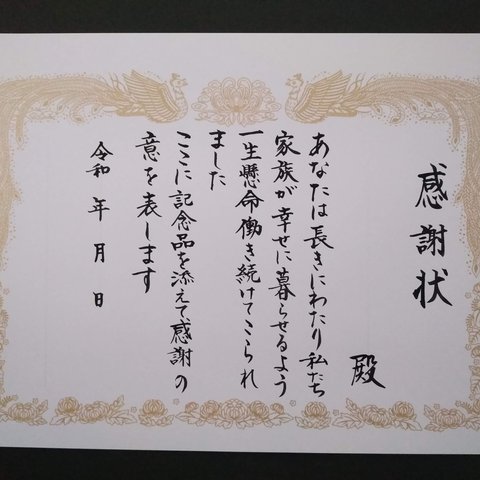 感謝状
殿
あなたは長きにわたり私たち
家族が幸せに暮らせるよう
一生懸命働き続けてこられ
ました
ここに記念品を添えて感謝の
意を表します
令和 年 月 日